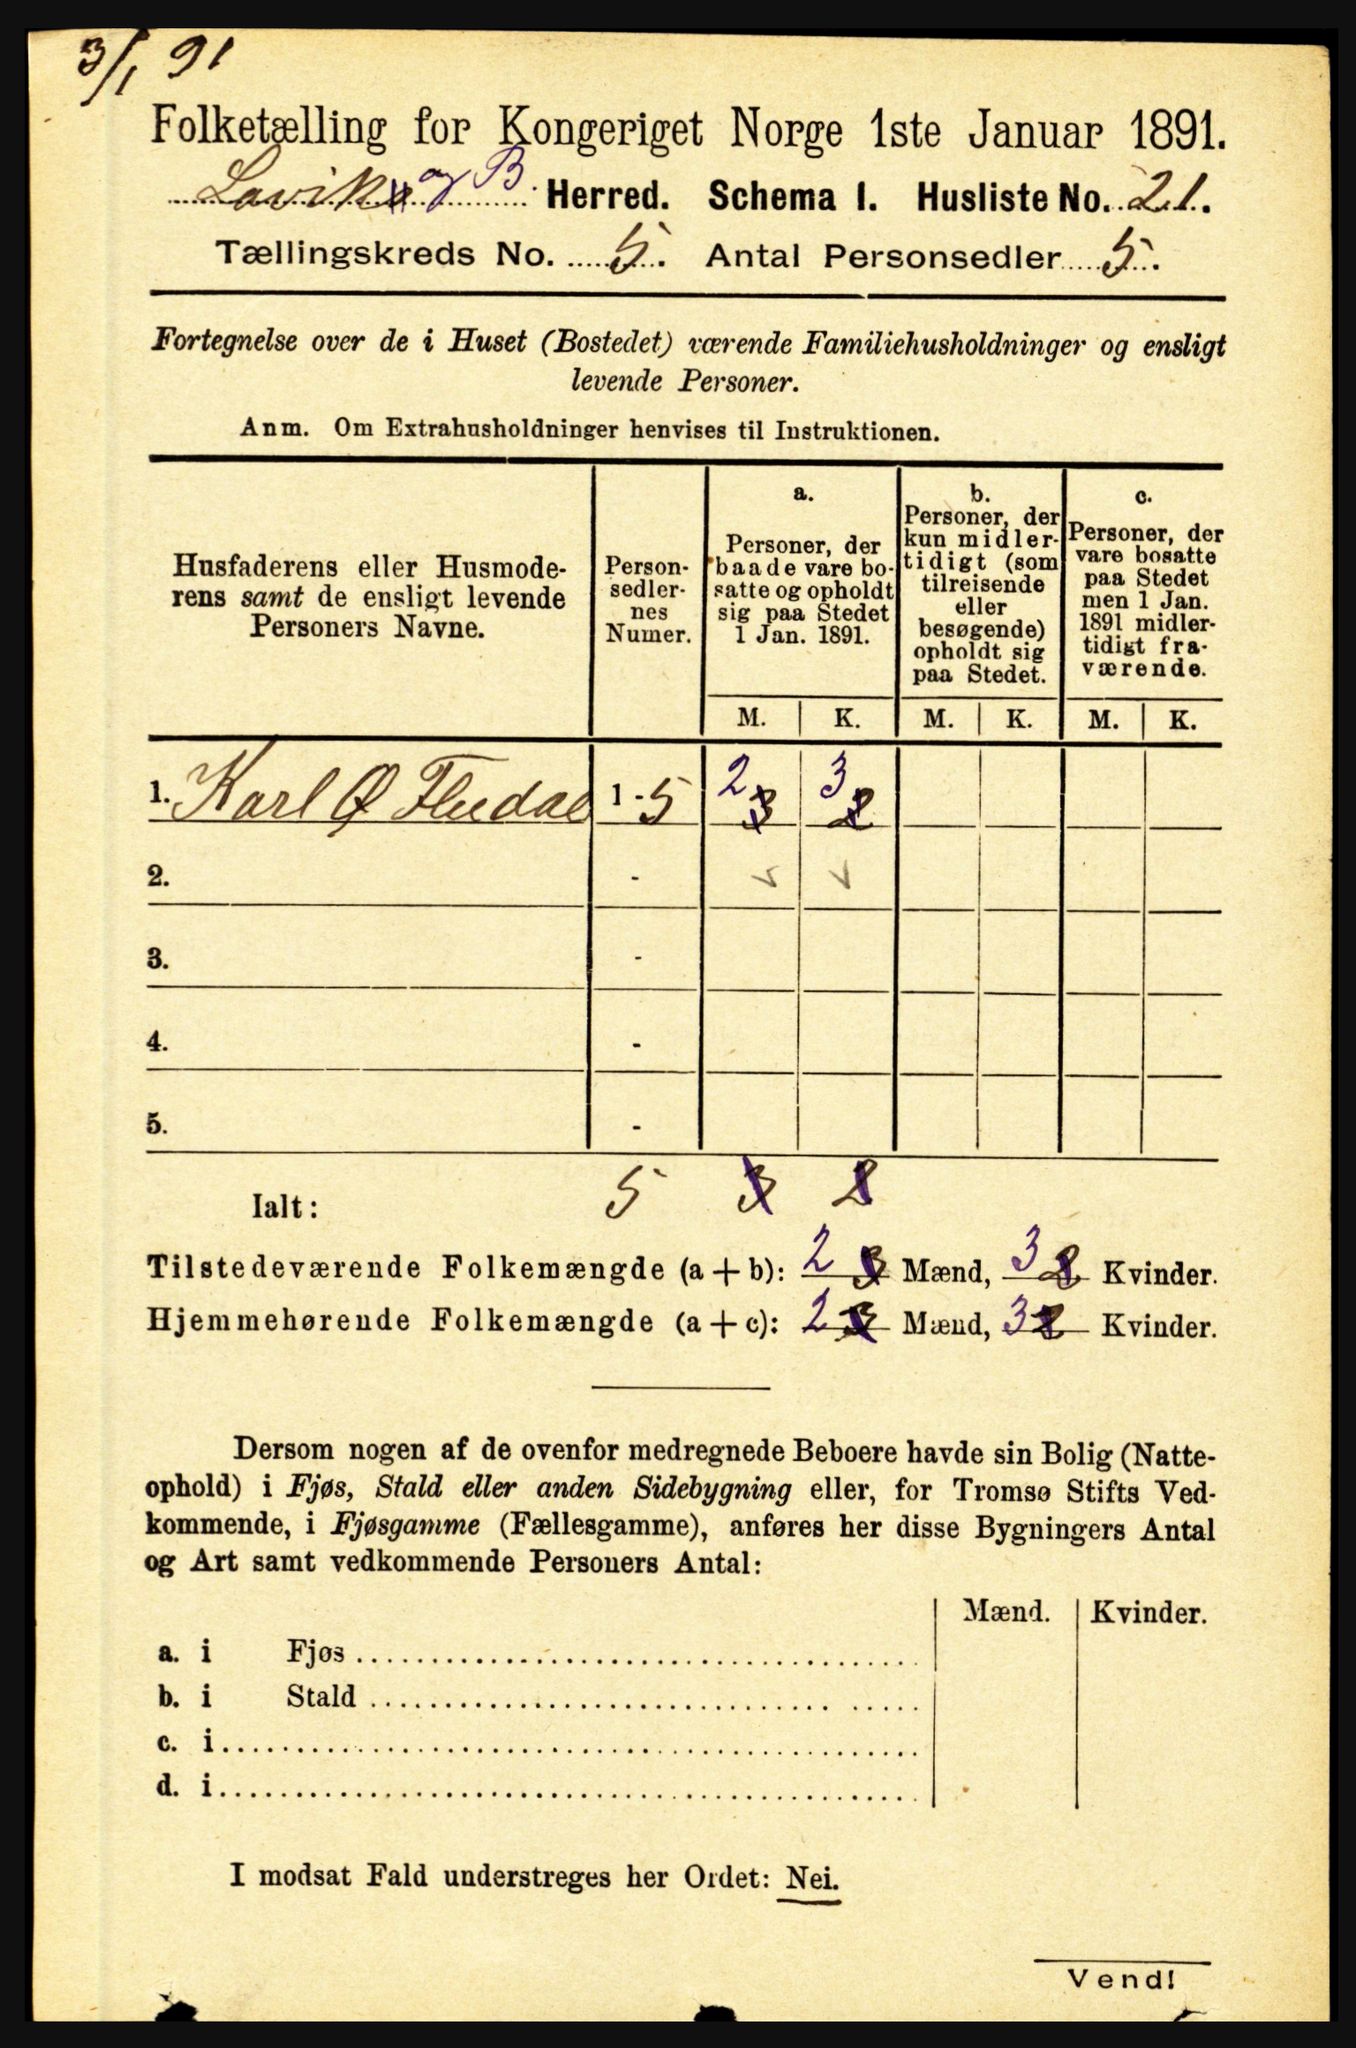 3/1 91
Folketælling for Kongeriget Norge 1ste Januar 1891.
Lavik og B. Herred. Schema I. Husliste No. 21.
Tællingskreds No. 5. Antal Personsedler 5.
Fortegnelse over de i Huset (Bostedet) værende Familiehusholdninger og ensligt
levende Personer.
Anm. Om Extrahusholdninger henvises til Instruktionen.
Husfaderens eller Husmode-
rens samt de ensligt levende
Personers Navne.
Person-
sedler-
nes
Numer.
a.
Personer, der
baade vare bo-
satte og opholdt
sig paa Stedet
1 Jan. 1891.
b.
Personer, der
kun midler-
tidigt (som
tilreisende
eller
besøgende)
opholdt sig
paa Stedet.
c.
Personer, der
vare bosatte
paa Stedet
men 1 Jan.
1891 midler-
tidigt fra-
værende.
M. K. M. K. M. K.
1. Karl Ø 1 - 5 2 3 3 2
2. -
3. -
4. -
5. -
Ialt: 5 3 2
Tilstedeværende Folkemængde (a + b): 2 3 Mænd, 3 2 Kvinder.
Hjemmehørende Folkemængde (a + c): 2 3 Mænd, 3 2 Kvinder.
Dersom nogen af de ovenfor medregnede Beboere havde sin Bolig (Natte-
ophold) i Fjøs, Stald eller anden Sidebygning eller, for Tromsø Stifts Ved-
kommende, i Fjøsgamme (Fællesgamme), anføres her disse Bygningers Antal
og Art samt vedkommende Personers Antal:
Mænd. Kvinder.
a. i Fjøs
b. i Stald
c. i
d. i
I modsat Fald understreges her Ordet: Nei.
Vend!